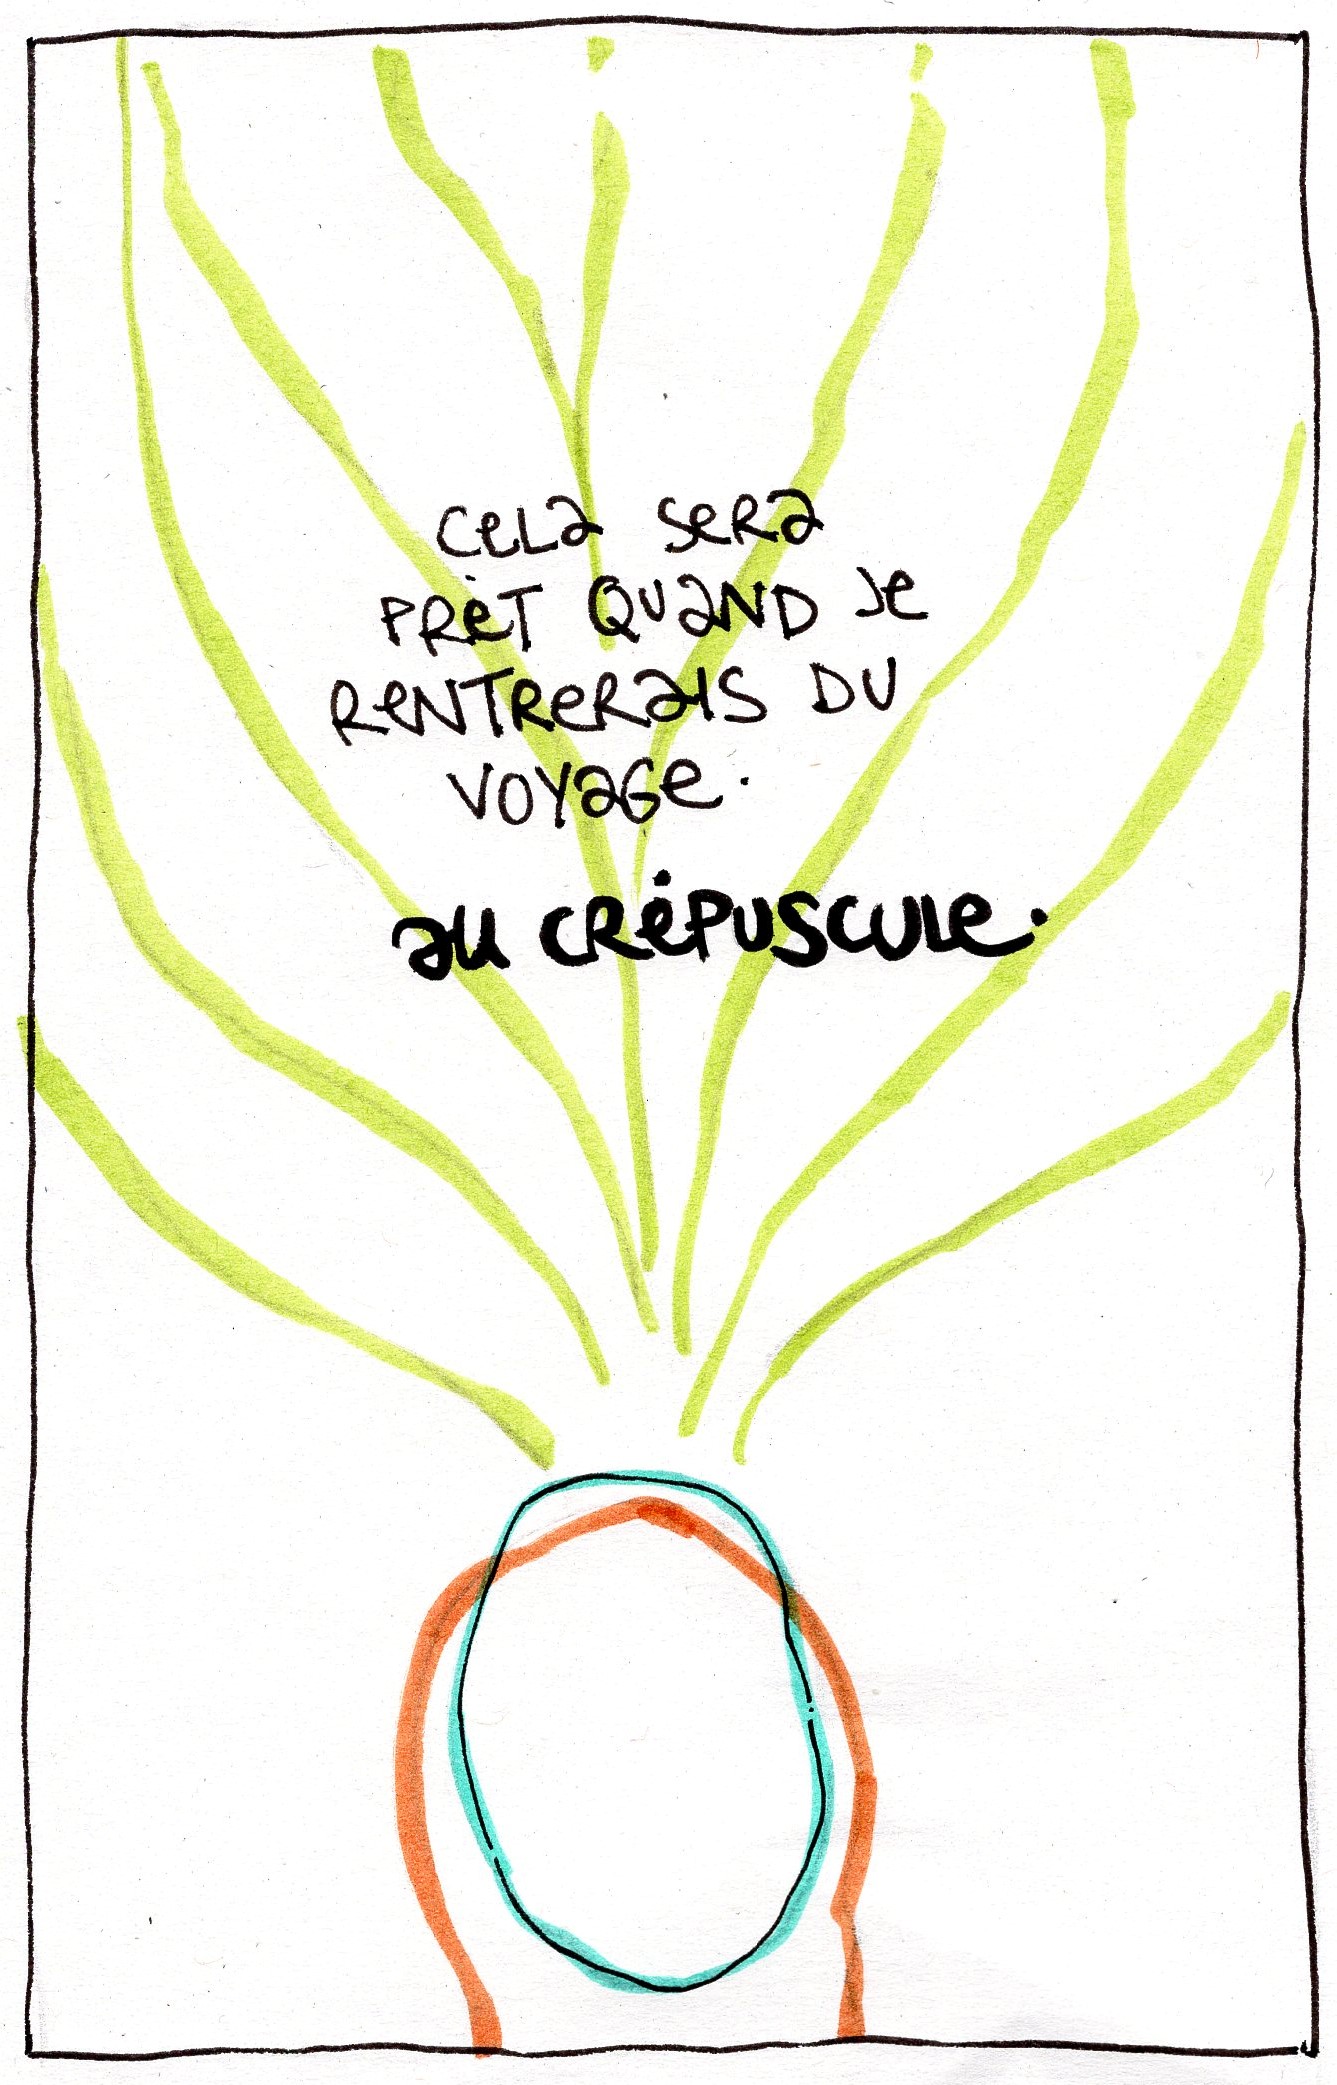 cela sera
prèt quand je
rentrerais du
voyage.
au crépuscule.